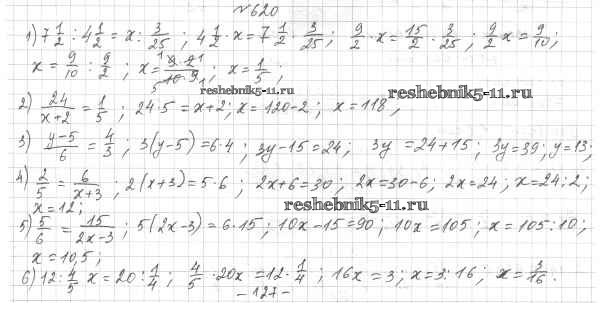 №620
1) 7 1/2 : 4 1/2 = x : 3/25 ; 4 1/2 · x = 7 1/2 · 3/25 ; 9/2 · x = 15/2 · 3/25 ; 9/2 x = 9/10 ;
x = 9/10 : 9/2 ; x = 9·2/10·9 ; x = 1/5 ;
reshebnik5-11.ru
reshebnik5-11.ru
2) 24/(x+2) = 1/5 ; 24·5 = x+2 ; x = 120-2 ; x = 118 ,
3) (y-5)/6 = 4/3 ; 3(y-5) = 6·4 ; 3y-15 = 24 ; 3y = 24+15 ; 3y = 39 ; y = 13 ;
4) 2/5 = 6/(x+3) ; 2(x+3) = 5·6 ; 2x+6 = 30 ; 2x = 30-6 ; 2x = 24 ; x = 24:2 ;
x = 12 ;
reshebnik5-11.ru
5) 5/6 = 15/(2x-3) ; 5(2x-3) = 6·15 ; 10x-15 = 90 ; 10x = 105 ; x = 105:10 ;
x = 10,5 ;
6) 12 : 4/5 x = 20 : 1/4 ; 4/5 · 20x = 12 · 1/4 ; 16x = 3 ; x = 3:16 ; x = 3/16 .
- 127 -